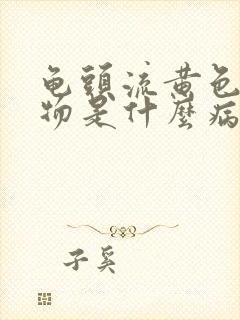 龟頭流黄色
物是什麼病
子奚